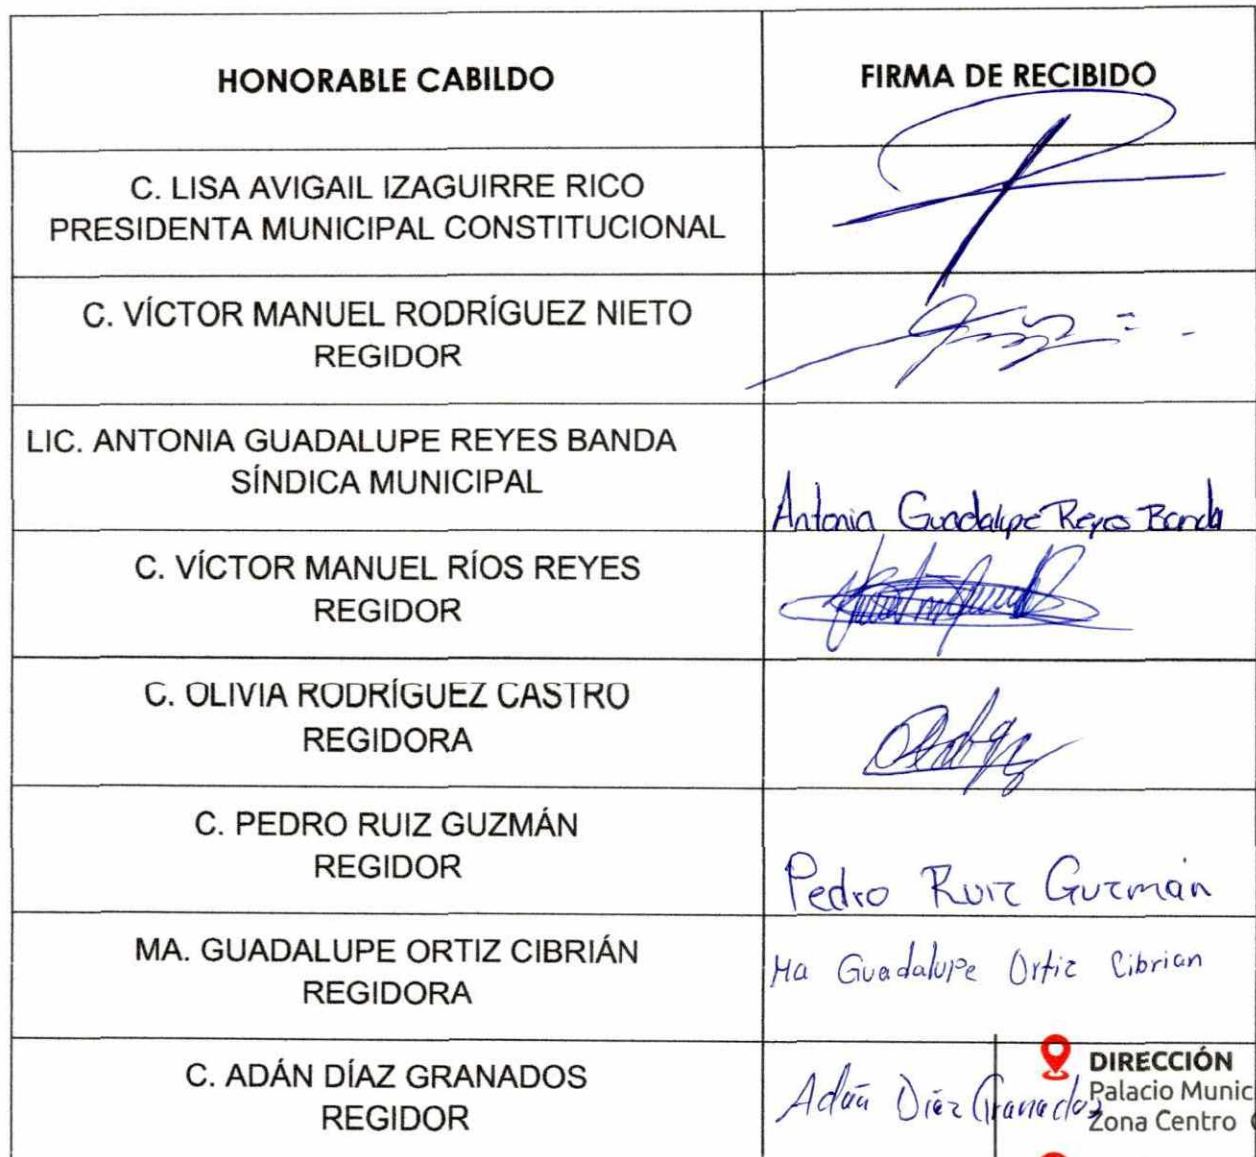 HONORABLE CABILDO
FIRMA DE RECIBIDO
C. LISA AVIGAIL IZAGUIRRE RICO
PRESIDENTA MUNICIPAL CONSTITUCIONAL
C. VÍCTOR MANUEL RODRÍGUEZ NIETO
REGIDOR
LIC. ANTONIA GUADALUPE REYES BANDA
SÍNDICA MUNICIPAL
Antonia Guadalupe Reyes Banda
C. VÍCTOR MANUEL RÍOS REYES
REGIDOR
C. OLIVIA RODRÍGUEZ CASTRO
REGIDORA
C. PEDRO RUIZ GUZMÁN
REGIDOR
Pedro Ruiz Guzmán
MA. GUADALUPE ORTIZ CIBRIÁN
REGIDORA
Ma Guadalupe Ortiz Cibrian
C. ADÁN DÍAZ GRANADOS
REGIDOR
Adán Díaz Granados
DIRECCIÓN
Palacio Munic
Zona Centro